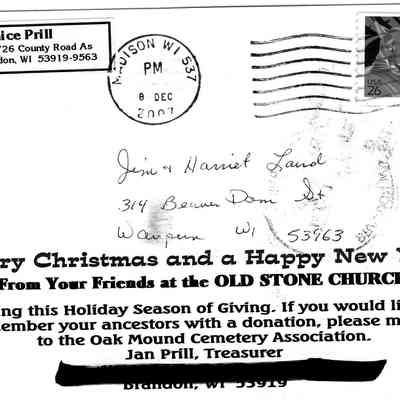 ice Prill
726 County Road As
don, WI 53919-9563
MADISON WI 537
PM
8 DEC
2007
USA
26
Jim & Harriet Laird
314 Beaver Dam St
Waupun WI 53963
ry Christmas and a Happy New Y
From Your Friends at the OLD STONE CHURCH
ing this Holiday Season of Giving. If you would li
member your ancestors with a donation, please m
to the Oak Mound Cemetery Association.
Jan Prill, Treasurer
Brandon, WI 53919